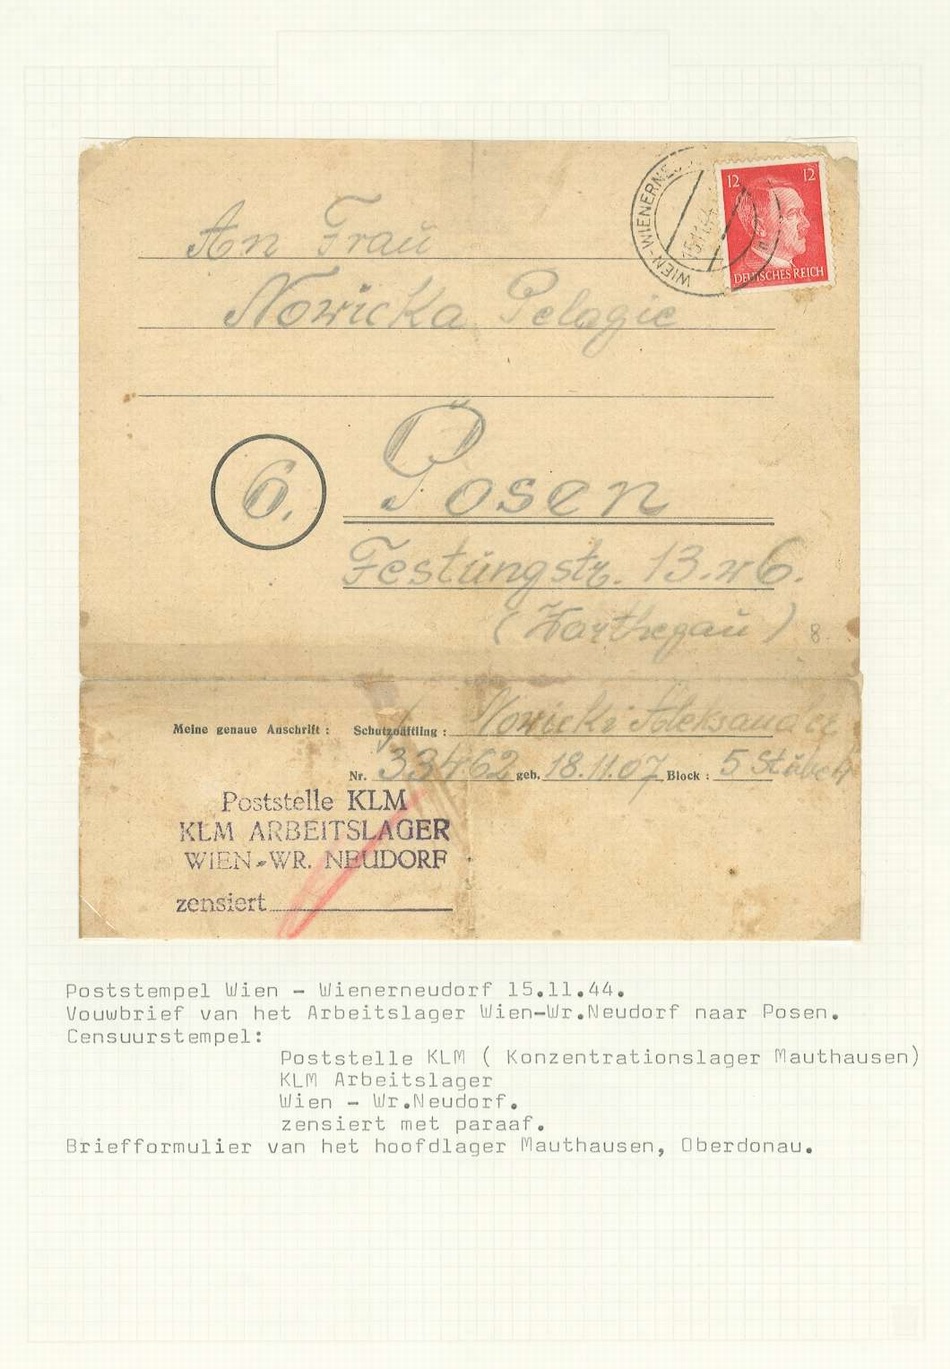 WIEN-WIENERNEU
15.11.44
12 12
DEUTSCHES REICH
An Frau
Nowicka Pelagie
6. Posen
Festungstr. 13. w 6.
(Warthegau) 8
Meine genaue Anschrift: Schutzhäftling: Nowicki Aleksander
Nr. 33462 geb. 18.11.07 Block: 5 Stube
Poststelle KLM
KLM ARBEITSLAGER
WIEN-WR. NEUDORF
zensiert
Poststempel Wien - Wienerneudorf 15.11.44.
Vouwbrief van het Arbeitslager Wien-Wr.Neudorf naar Posen.
Censuurstempel:
Poststelle KLM ( Konzentrationslager Mauthausen)
KLM Arbeitslager
Wien - Wr.Neudorf.
zensiert met paraaf.
Briefformulier van het hoofdlager Mauthausen, Oberdonau.